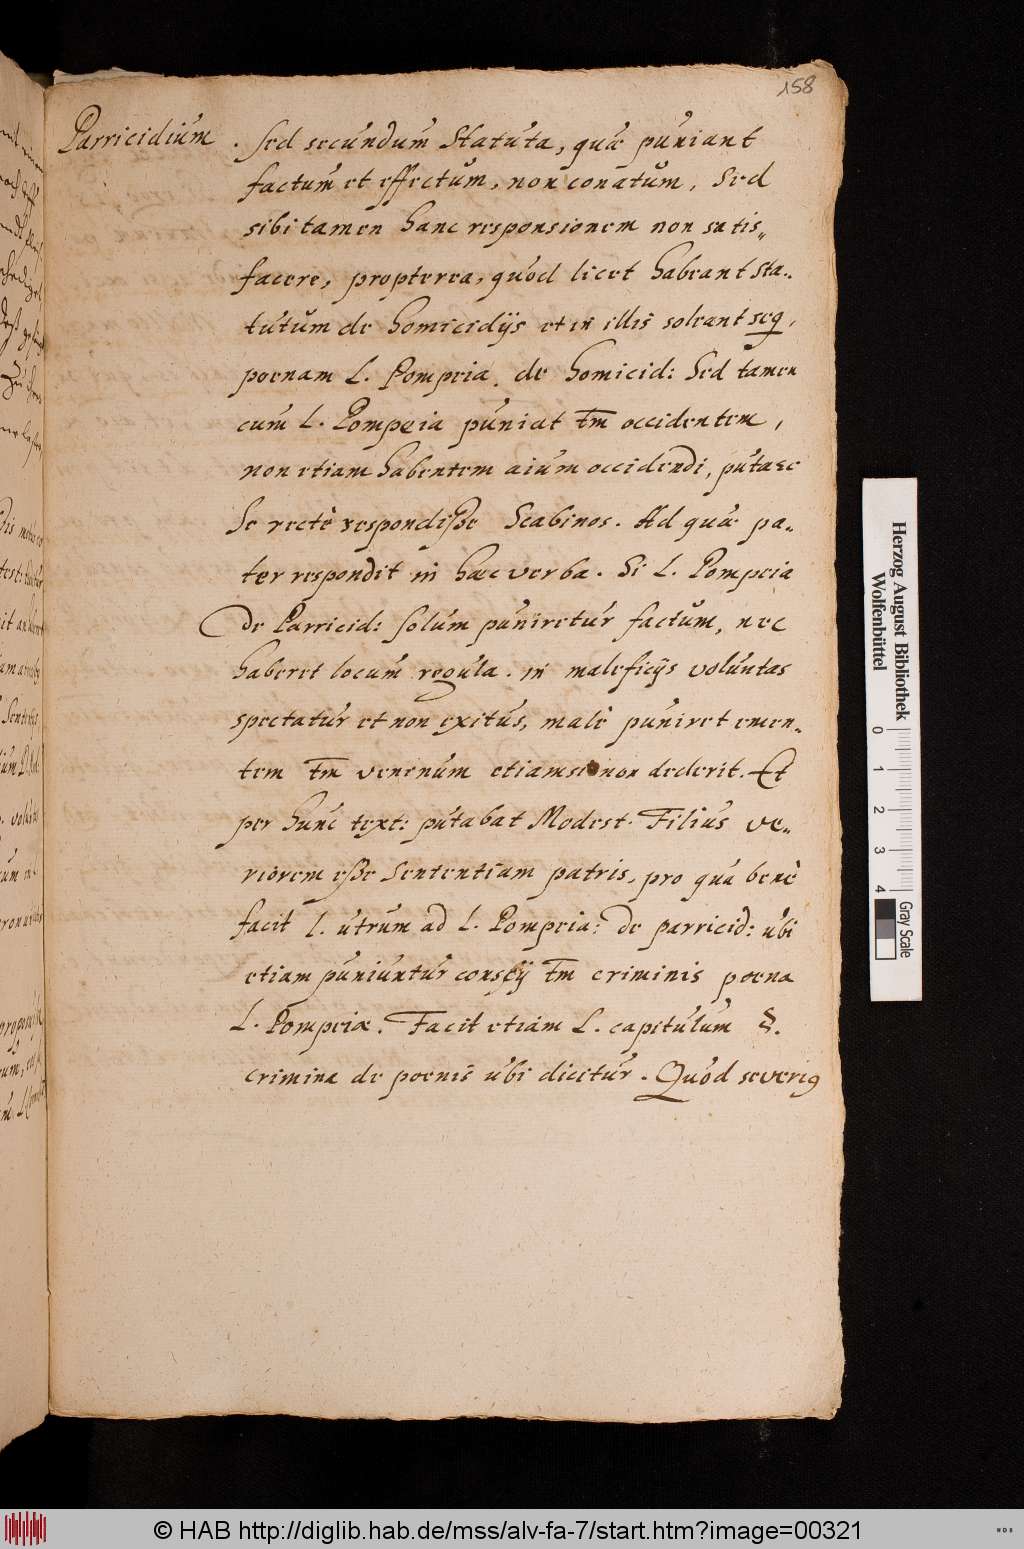 158
Parricidium . Sed secundum Statuta, quæ puniant
factum et effectum, non conatum, Sed
sibi tamen hanc responsionem non satis„
facere, propterea, quod licet habeant sta„
tutum de homicidijs et in illis soleant seq,
poenam L. Pompeia. de homicid: Sed tamen
cum L. Pompeia puniat tm̄ occidentem,
non etiam habentem aium occidendi, putare
se rectè respondisse Scabinos. Ad quæ pa„
ter respondit in hæc verba. Si L. Pompeia
De Parricid: solum puniretur factum, nec
haberet locum regula. in maleficijs voluntas
spectatur et non exitus, malè puniret emen„
tem tm̄ venenum etiamsi non dederit. Et
per hunc text: putabat Modest. Filius ve„
riorem esse Sententiam patris, pro qua benè
facit l. utrum ad L. Pompeia: de parricid: ubi
etiam puniuntur conscij tm̄ criminis poena
L. Pompeiæ. Facit etiam L. capitulum §.
crimina de poenis ubi dicitur. Quod severig
Herzog August Bibliothek
Wolfenbüttel
0 1 2 3 4
Gray Scale
© HAB http://diglib.hab.de/mss/alv-fa-7/start.htm?image=00321